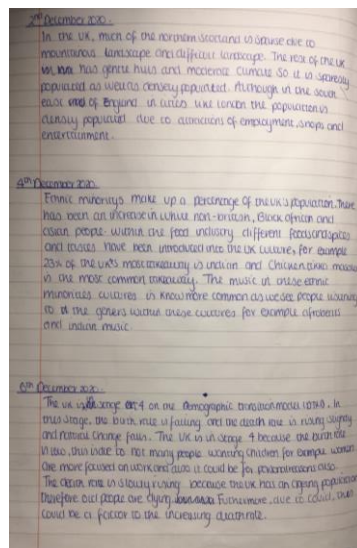 2nd December 2020.
In the UK, much of the northern scotland is sparse due to
mountainous landscape and difficult landscape. The rest of the UK
has gentle hills and moderate climate so it is sparesly
populated as well as densely populated. Although in the south
east of England in cities like london the population is
densly populated due to attractions of employment, shops and
entertainment.
4th December 2020.
Ethnic minoritys make up a percentage of the UK's population. There
has been an increase in white non-british, Black african and
asian people. within the food industry different foods and spices
and tastes have been introduced into the UK culture, for example
23% of the UK's most takeaway is indian and Chicken tikka masala
is the most common takeaway. The music in these ethnic
minorities cultures is know more common as we see people
to the within these cultures for example afrobeats
and indian music.
6th December 2020.
The UK is stage 4 on the demographic transition model (DTM). In
this stage, the birth rate is falling and the death rate is rising slightly
and natural change falls. The UK is in stage 4 because the birth rate
is low, this is due to not many people wanting children for example women
are more focused on work and also it could be for personal reasons also.
The death rate is slowly rising because the UK has an ageing population
therefore old people are dying. Furthermore, due to covid, this
could be a factor to the increasing deathrate.